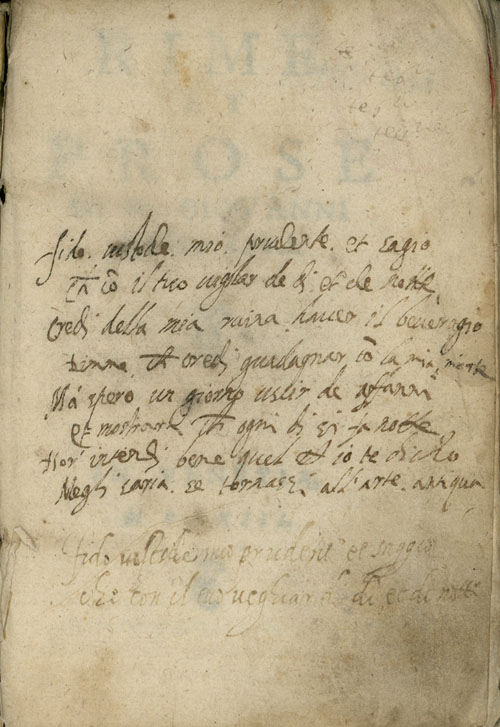 RIME
ET
PROSE
fido custode mio prudente et sagio
Ch cõ il tuo vigilar de di et de notte
Credi della mia ruina haver il beveragio
dimme Ch credi guadagnar cõ la mia morte
Ma spero un giorno uscir de affanni
et mostrare Ch ogni di si fa notte
Hor intendi bene quel Ch io te dicho
Megli saria se tornassi all'arte antiqua
fido custode mio prudent et saggio
che con il tuo veghiar di et di notte